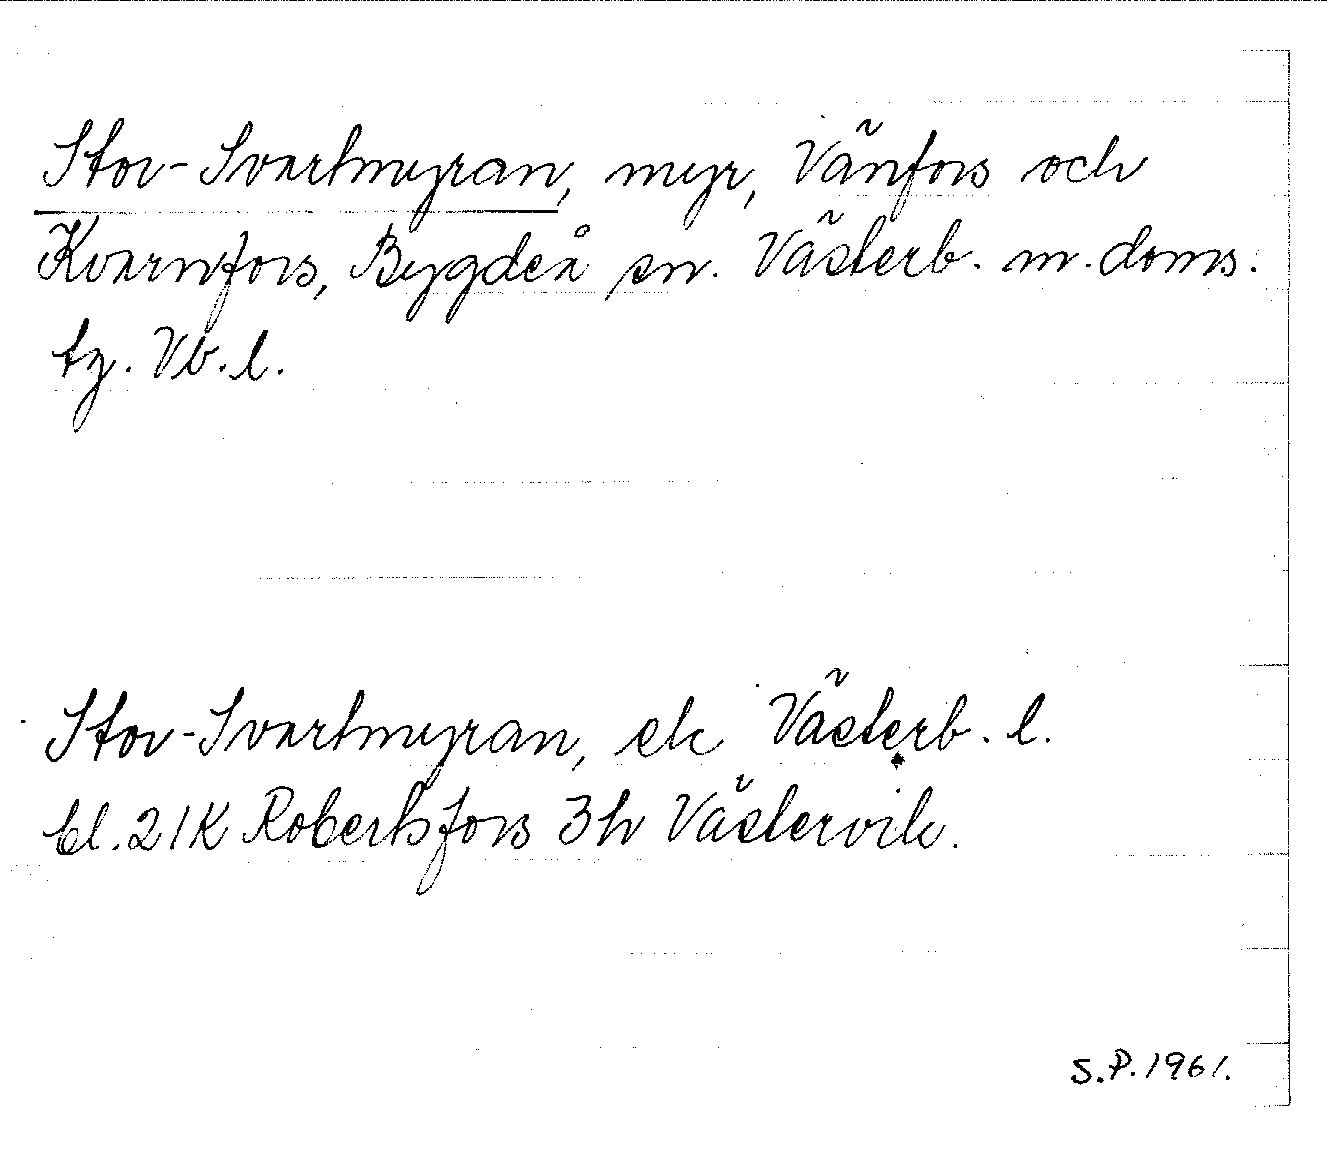 Stor-Svartmyran, myr, Vänfors och
Kvarnfors, Bygdeå sn. Västerb. m. doms.
tg. Vb. l.
Stor-Svartmyran, ek Västerb. l.
bl. 21K Robertsfors 3h Västervik.
S.P. 1961.